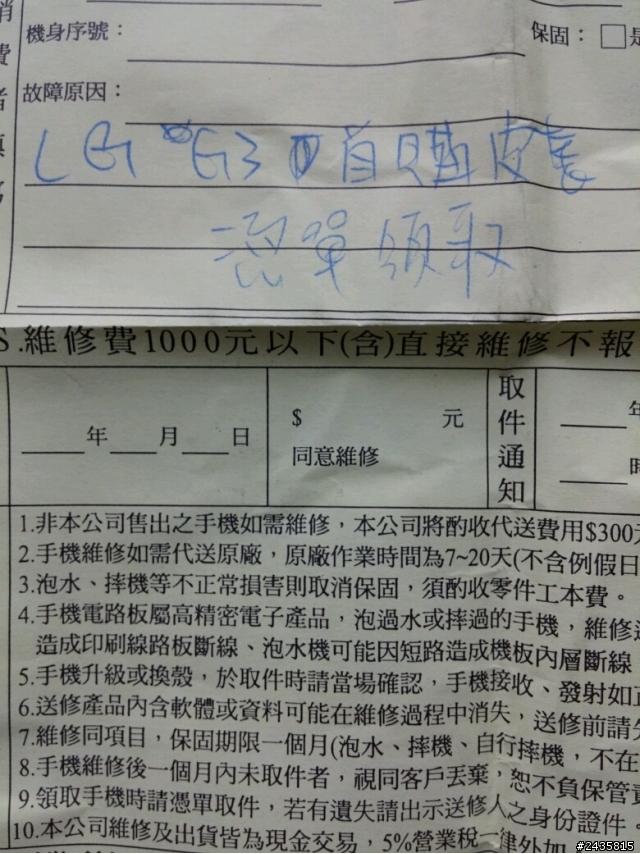 消費者填
機身序號：
保固：□是
故障原因：
LG G3 首購皮套
憑單領取
S.維修費1000元以下(含)直接維修不報
年 月 日
$ 元
同意維修
取件通知
年
時
1.非本公司售出之手機如需維修，本公司將酌收代送費用$300元
2.手機維修如需代送原廠，原廠作業時間為7~20天(不含例假日
3.泡水、摔機等不正常損害則取消保固，須酌收零件工本費。
4.手機電路板屬高精密電子產品，泡過水或摔過的手機，維修
造成印刷線路板斷線、泡水機可能因短路造成機板內層斷線
5.手機升級或換殼，於取件時請當場確認，手機接收、發射如正
6.送修產品內含軟體或資料可能在維修過程中消失，送修前請
7.維修同項目，保固期限一個月(泡水、摔機、自行摔機，不在
8.手機維修後一個月內未取件者，視同客戶丟棄，恕不負保管責
9.領取手機時請憑單取件，若有遺失請出示送修人之身份證件。
10.本公司維修及出貨皆為現金交易，5%營業稅一律外加
#2435815